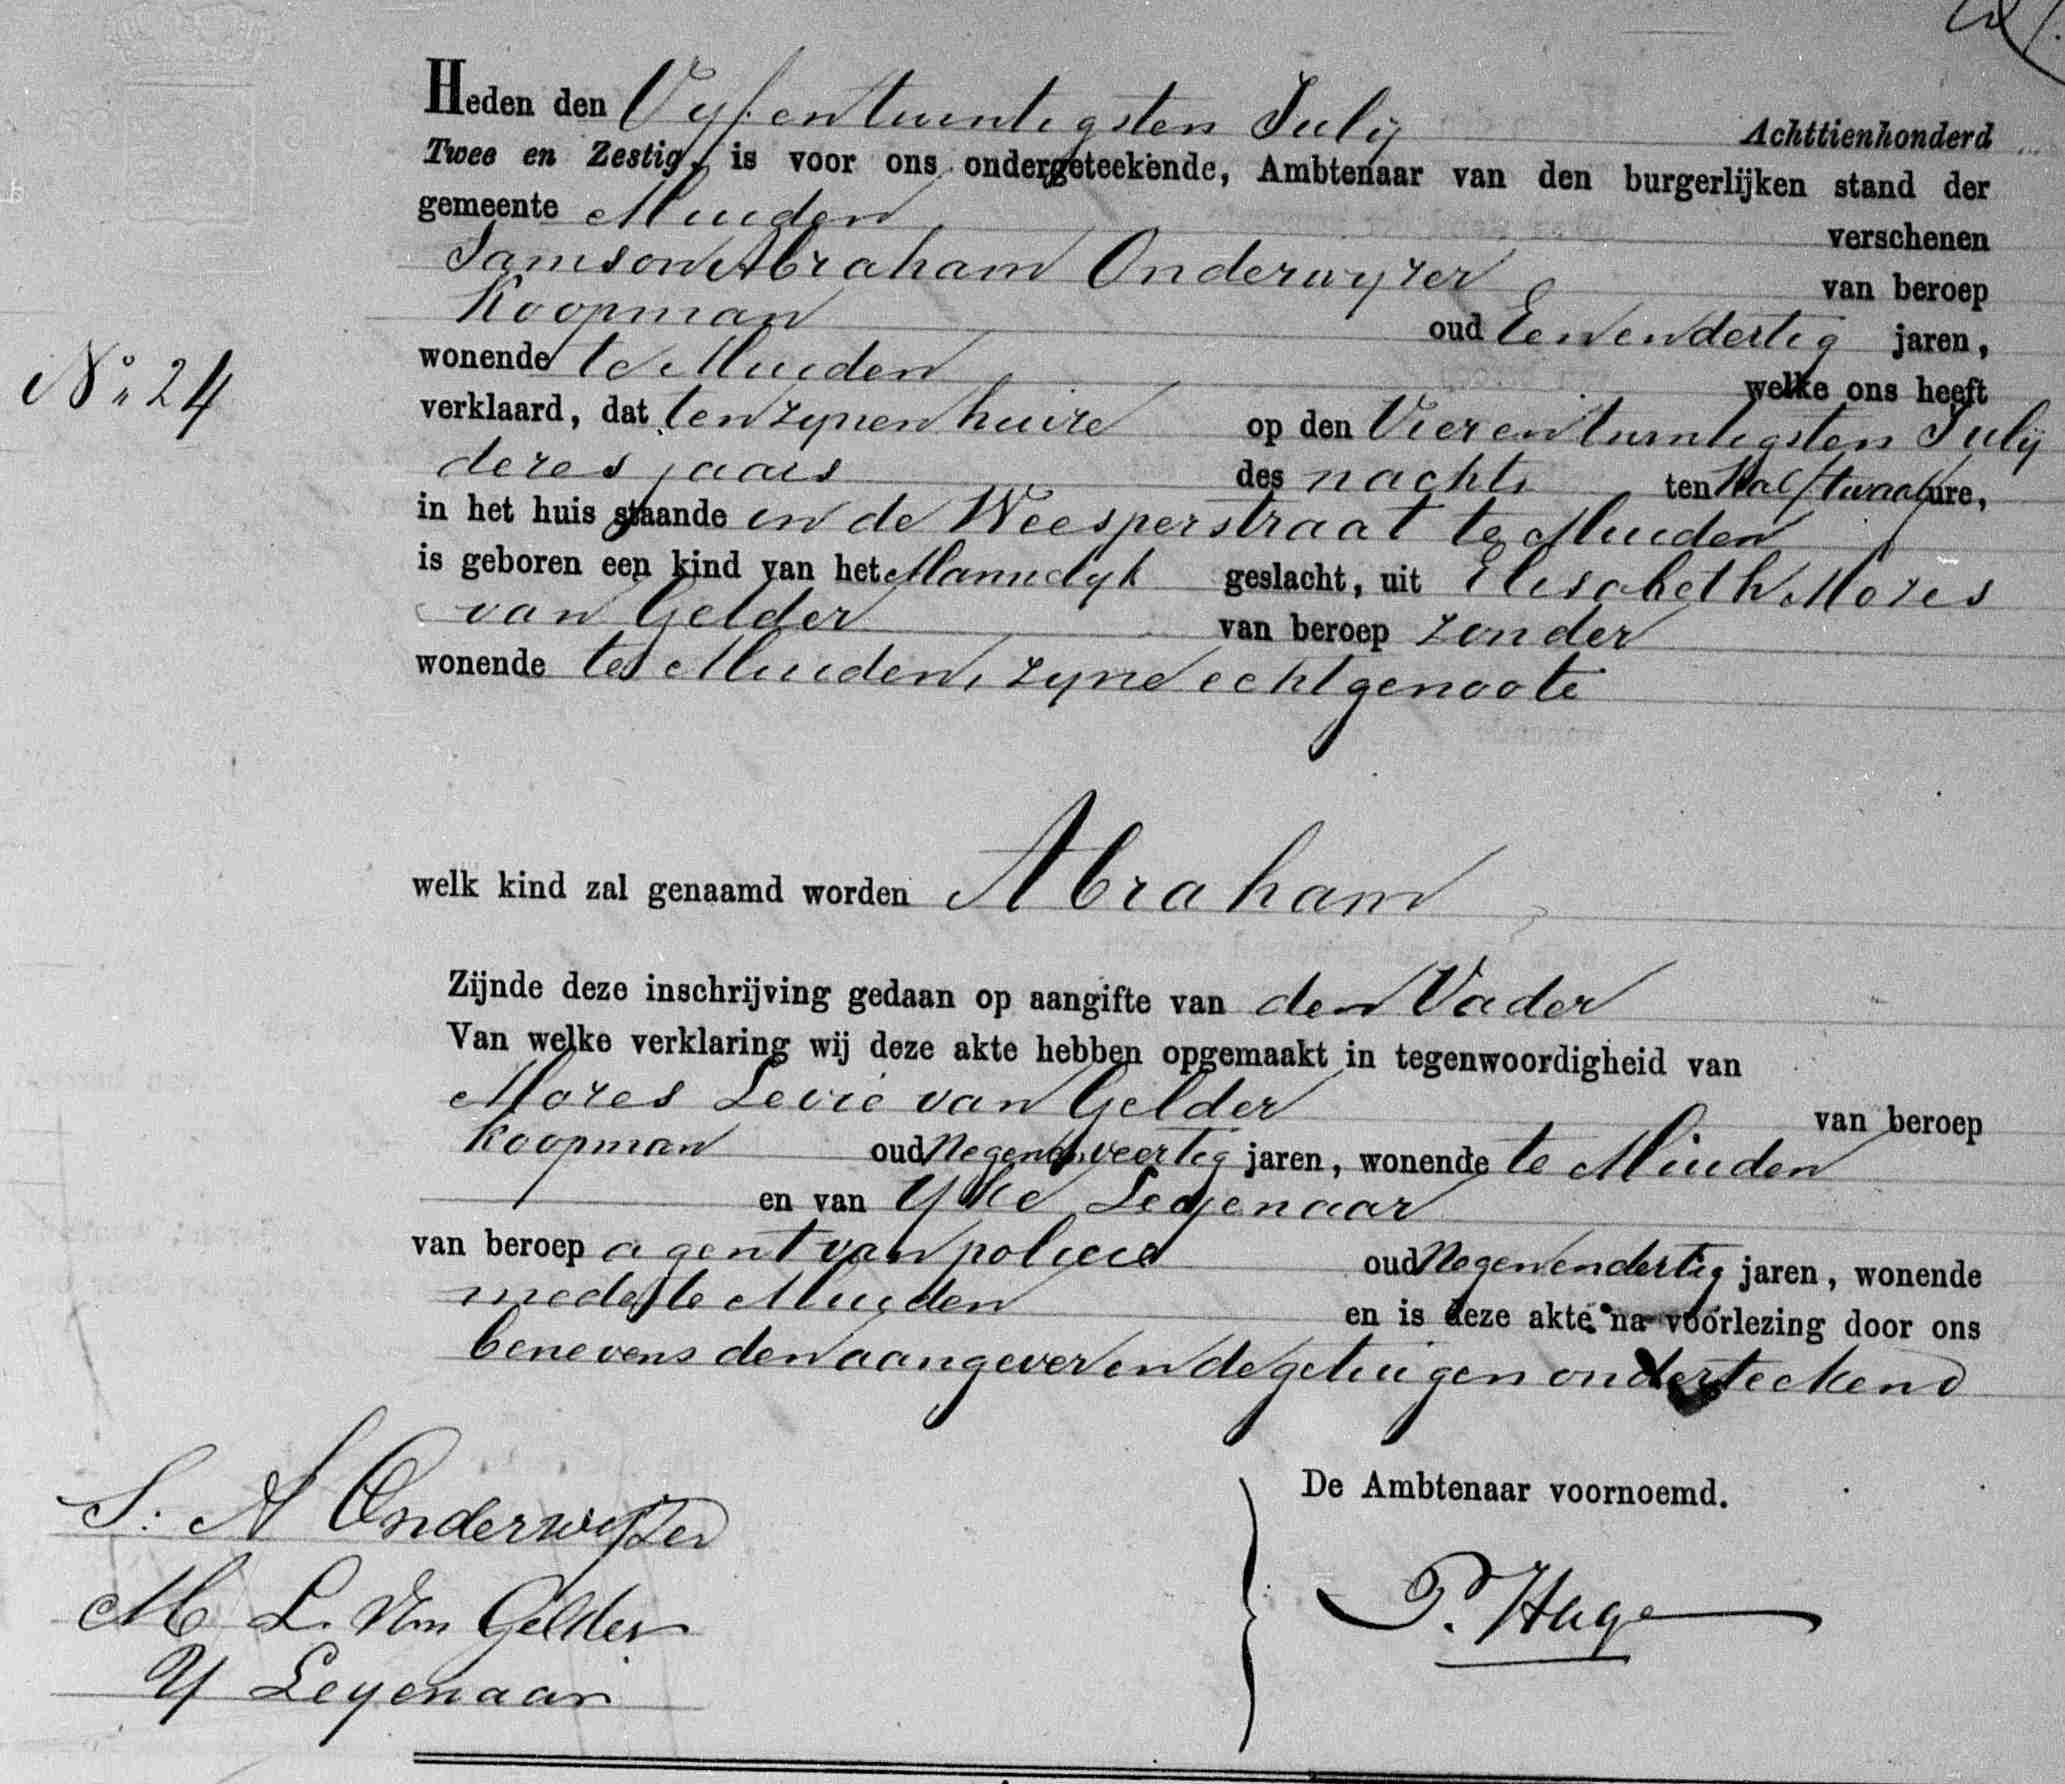 Heden den Vyfentwintigsten Julij Achttienhonderd
Twee en Zestig, is voor ons ondergeteekende, Ambtenaar van den burgerlijken stand der
gemeente Muiden verschenen
Samson Abraham Onderwyzer van beroep
Koopman oud Eenendertig jaren,
wonende te Muiden welke ons heeft
verklaard, dat ten zynen huize op den Vierentwintigsten Julij
dezes jaars des nachts ten Half twaalf ure,
in het huis staande in de Weesperstraat te Muiden
is geboren een kind van het Mannelyk geslacht, uit Elisabeth Mozes
van Gelder van beroep zonder
wonende te Muiden, zyne echtgenoote
Nº 24
welk kind zal genaamd worden Abraham
Zijnde deze inschrijving gedaan op aangifte van den Vader
Van welke verklaring wij deze akte hebben opgemaakt in tegenwoordigheid van
Mozes Levie van Gelder van beroep
Koopman oud Negenenveertig jaren, wonende te Muiden
en van Yke Leyenaar
van beroep agent van policie oud Negenendertig jaren, wonende
mede te Muiden en is deze akte na voorlezing door ons
benevens den aangever en de getuigen onderteekend
De Ambtenaar voornoemd.
S. A Onderwijzer
M L. Van Gelder
Y Leyenaar
P. Hage